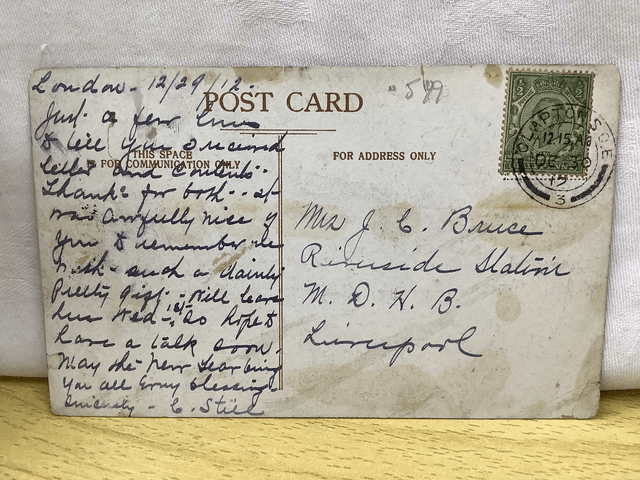 London - 12/29/12.
POST CARD
599
Just a few lines
to tell you I received
letter and contents.
THIS SPACE
IS FOR COMMUNICATION ONLY
FOR ADDRESS ONLY
Thanks for both - it
was awfully nice of
you to remember me
with such a dainty
pretty gift - Will leave
here Wed - 1st - so hope to
have a talk soon.
May the New Year bring
you all every blessing
Sincerely - C. Still
Mrs J. C. Bruce
Riverside Station
M. D. H. B.
Liverpool
CLAPTON
12.15 AM
DE 30
12
3